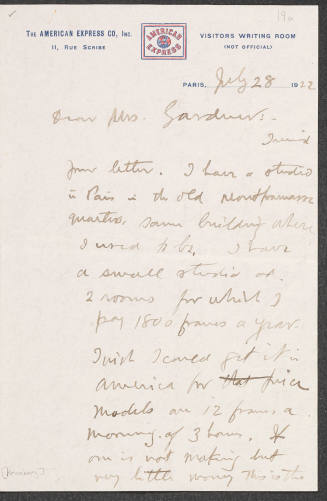 19a
THE AMERICAN EXPRESS CO, INC.
11, RUE SCRIBE
AMERICAN
EXPRESS
VISITORS WRITING ROOM
(NOT OFFICIAL)
PARIS, July 28 1922
Dear Mrs. Gardner:
your letter. I have a studio
in Paris in the old Montparnasse
quarter, same building where
I used to be. I have
a small studio of
2 rooms for which I
pay 1800 francs a year.
I wish I could get it in
America for that price
Models are 12 francs a
morning of 3 hours. If
one is not making but
very little money this is the